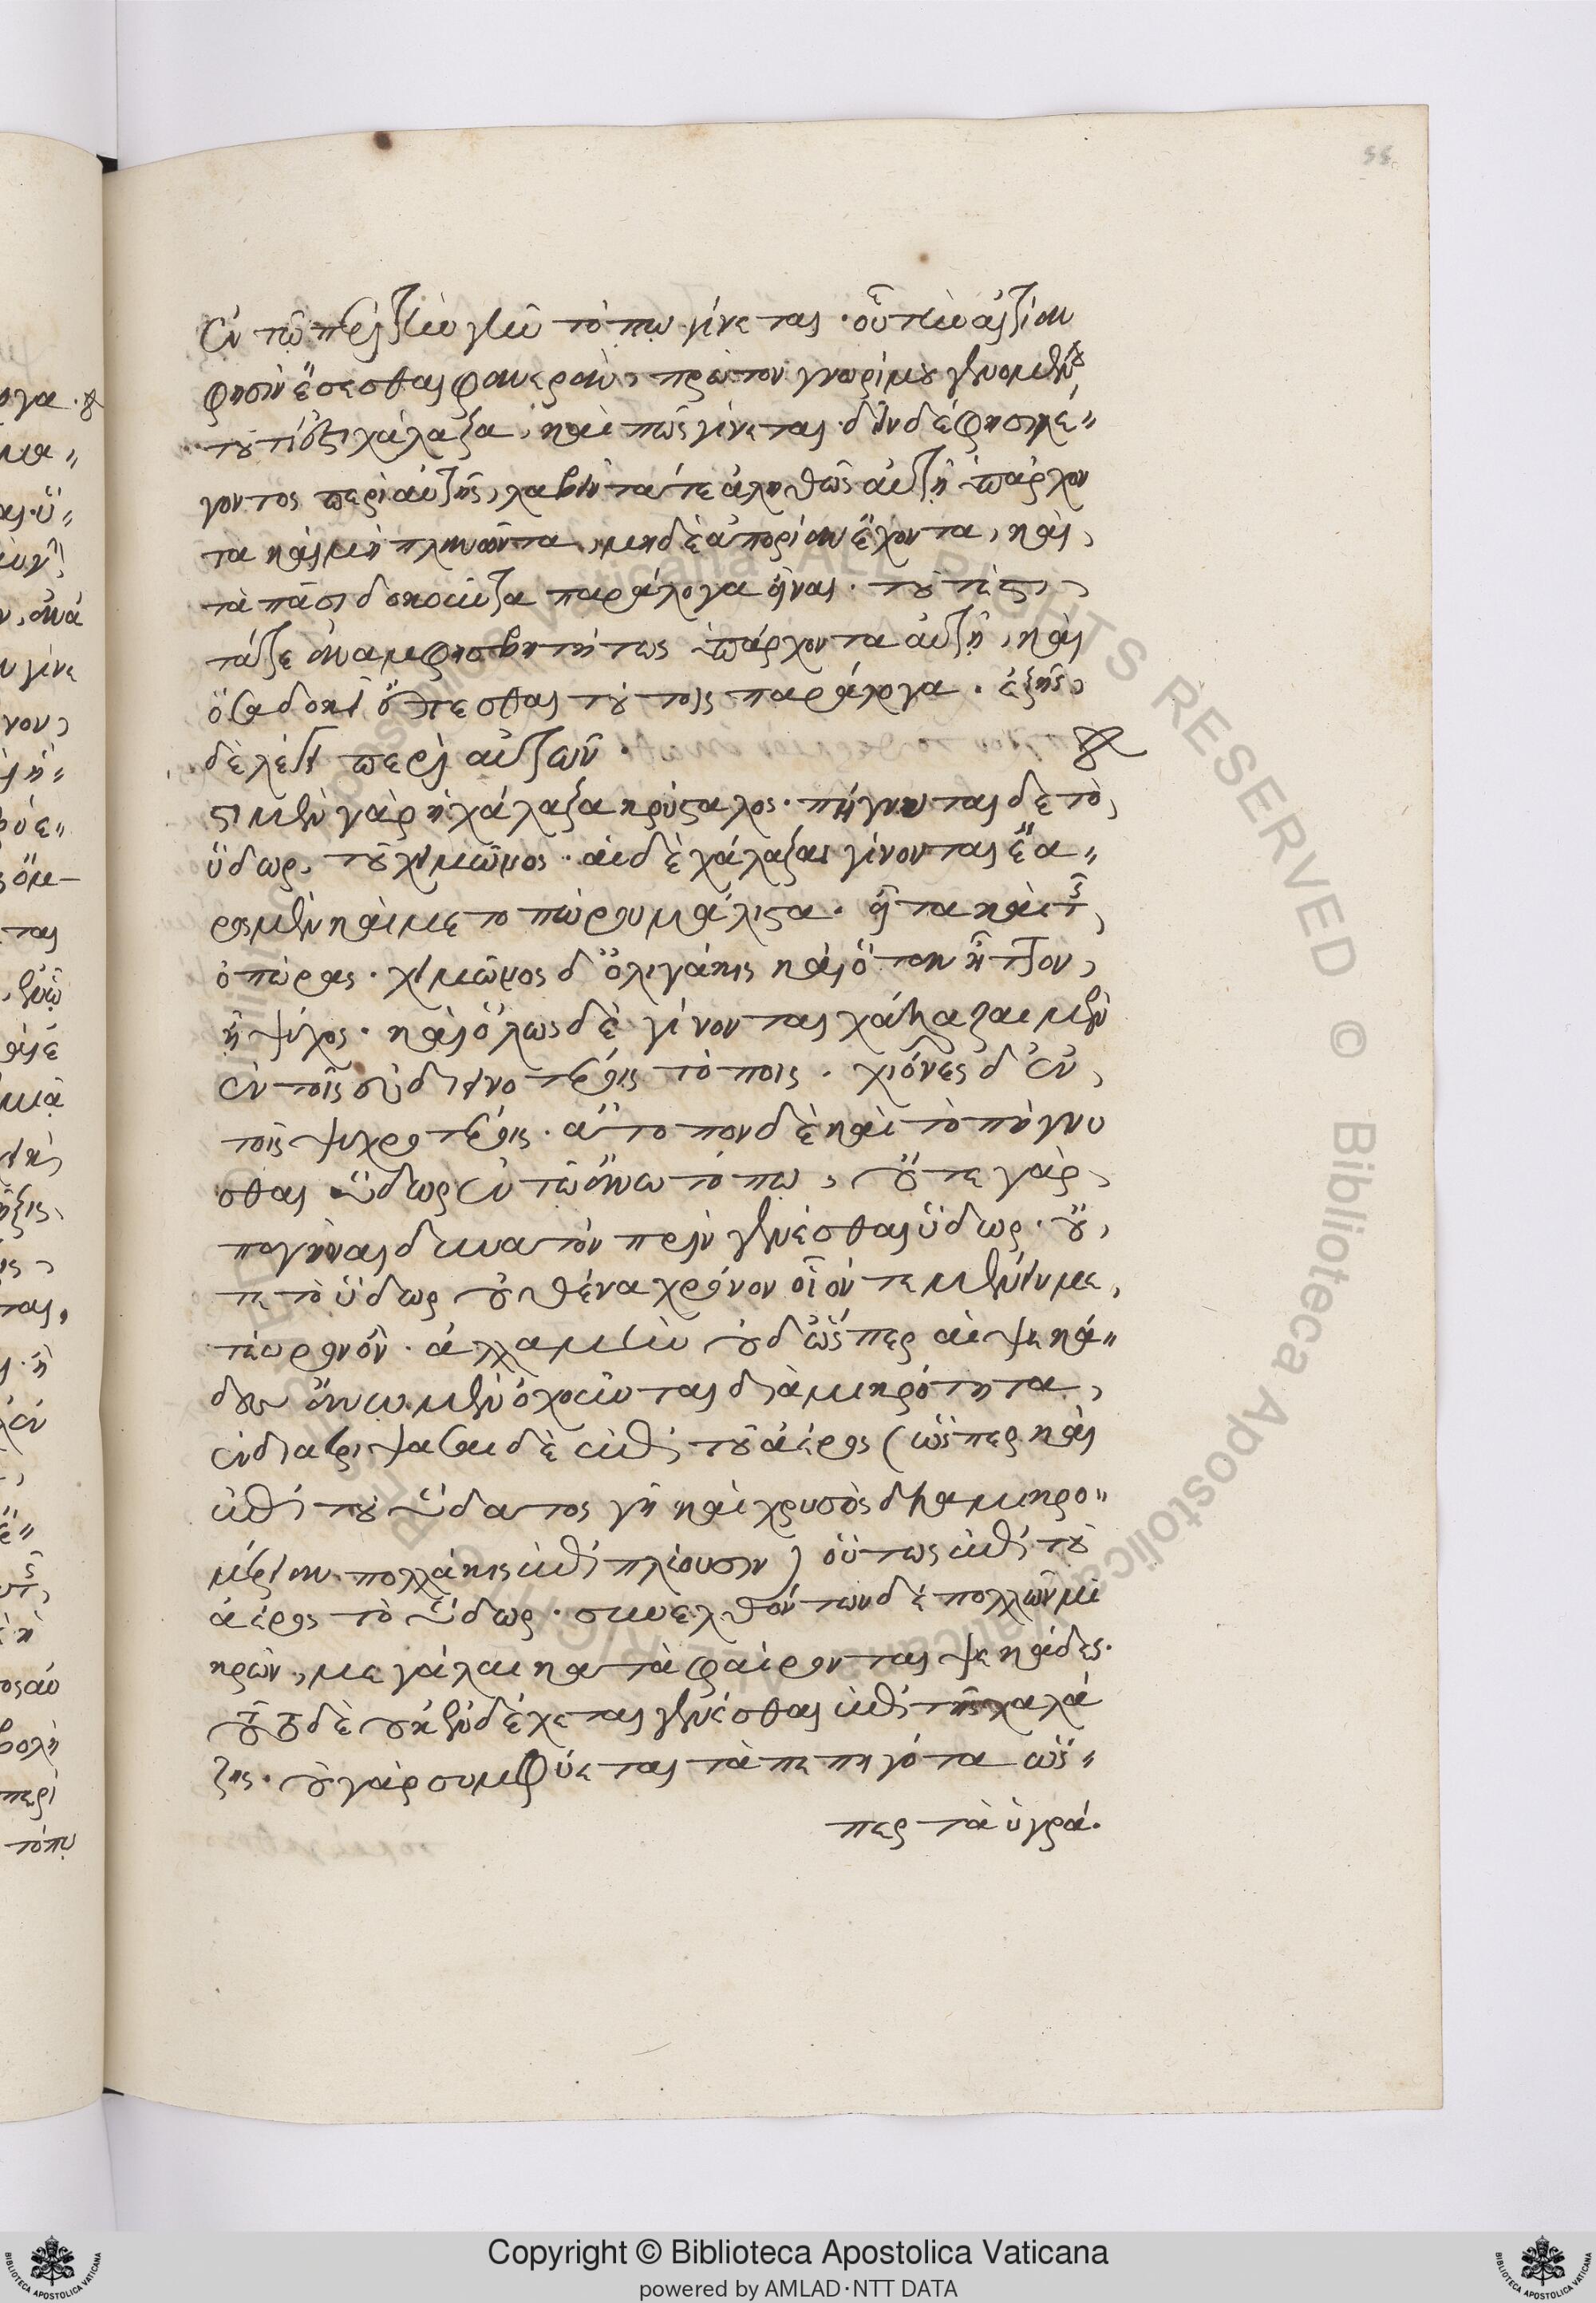 ἐν τῷ περὶ τὴν γῆν τόπῳ γίνεται. οὗ τὴν αἰτίαν
φησὶν ἔσεσθαι φανεράν, πρῶτον γνωρίμου γενομένου
τοῦ τί ἐστι χάλαζα, καὶ πῶς γίνεται. δεῖν δέ φησι λέ"
γοντος περὶ αὐτῆς, λαβεῖν τά τε ἀληθῶς αὐτῇ ὑπάρχον
τα καὶ μὴ πλανῶντα, μηδὲ ἀπορίαν ἔχοντα, καὶ
τὰ πᾶσι δοκοῦντα παράλογα εἶναι. τουτέστι
τά τε ἀναμφισβητήτως ὑπάρχοντα αὐτῇ, καὶ
ὅσα δοκεῖ ἕπεσθαι τούτοις παράλογα. ἑξῆς
δὲ λέγει περὶ αὐτῶν.
ἔστι μὲν γὰρ ἡ χάλαζα κρύσταλλος. πήγνυται δὲ τὸ
ὕδωρ, τοῦ χειμῶνος. αἱ δὲ χάλαζαι γίνονται ἔα"
ρος μὲν καὶ μετοπώρου μάλιστα. εἶτα καὶ τῆς
ὀπώρας. χειμῶνος δ' ὀλιγάκις καὶ ὅταν ἧττον
ᾖ ψύχος. καὶ ὅλως δὲ γίνονται χάλαζαι μὲν
ἐν τοῖς εὐδιεινοτέροις τόποις. χιόνες δ' ἐν
τοῖς ψυχροτέροις. ἄτοπον δὲ καὶ τὸ πήγνυ
σθαι ὕδωρ ἐν τῷ ἄνω τόπῳ, οὔτε γὰρ
παγῆναι δυνατὸν πρὶν γενέσθαι ὕδωρ. οὔ
τε τὸ ὕδωρ οὐθένα χρόνον οἷόν τε μένειν με
τέωρον ὄν. ἀλλὰ μὴν οὐδ' ὥσπερ αἱ ψεκά"
δες ἄνω μὲν ὀχοῦνται διὰ μικρότητα,
ἐνδιατρίψασαι δὲ ἐπὶ τοῦ ἀέρος (ὥσπερ καὶ
ἐπὶ τοῦ ὕδατος γῆ καὶ χρυσὸς διὰ μικρο"
μέρειαν πολλάκις ἐπιπλέουσιν) οὕτως ἐπὶ τοῦ
ἀέρος τὸ ὕδωρ. συνελθόντων δὲ πολλῶν μι
κρῶν, μεγάλαι καταφέρονται ψεκάδες.
τοῦτο δὲ οὐκ ἐνδέχεται γενέσθαι ἐπὶ τῆς χαλά
ζης. οὐ γὰρ συμφύεται τὰ πεπηγότα ὥσ"
περ τὰ ὑγρά.